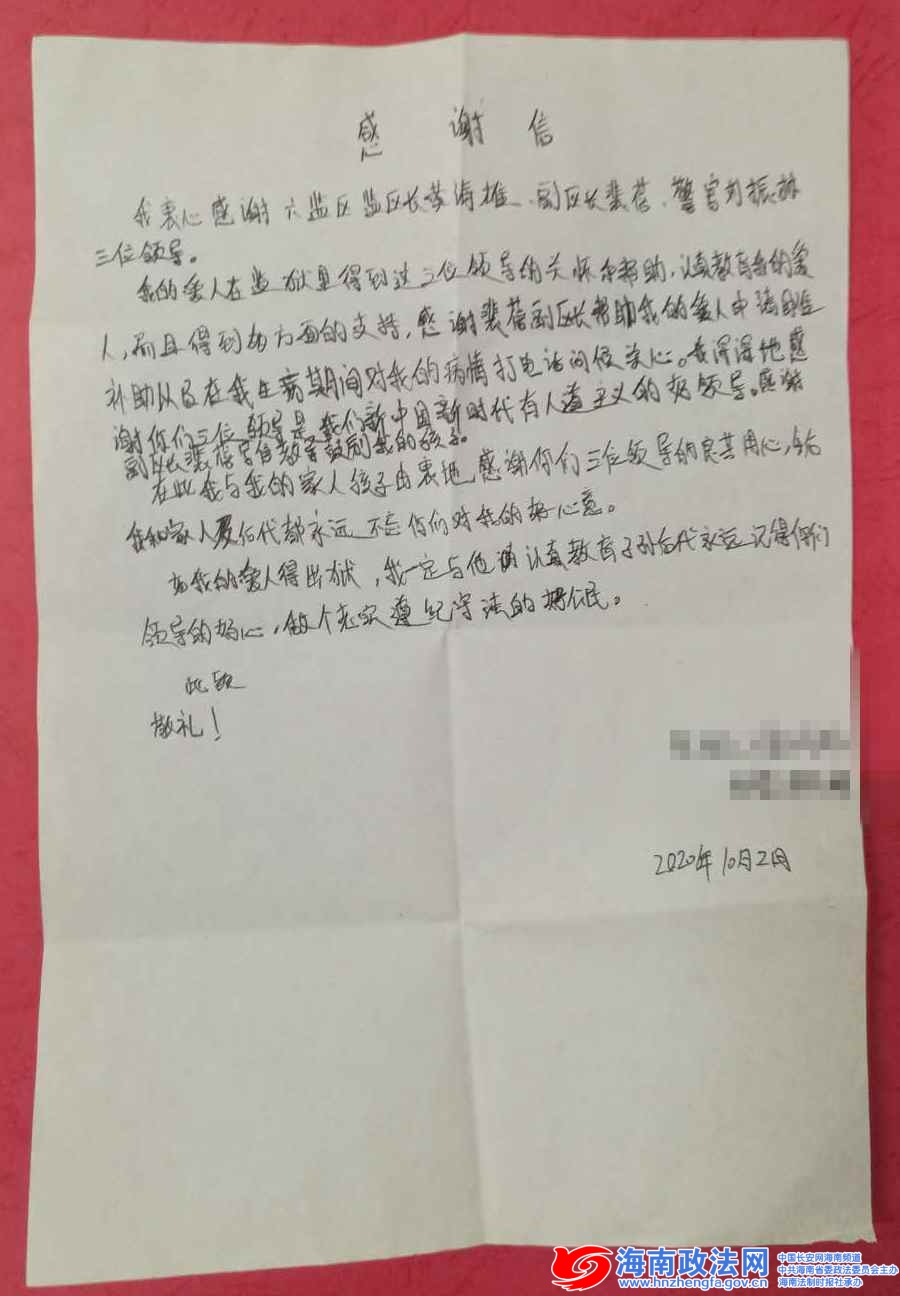 感谢信
我衷心感谢六监区监区长黄海雄、副区长裴蓓、警官刘振
三位领导。
我的爱人在监狱里得到这三位领导的关怀和帮助,认真教育我的爱
人,而且得到各方面的支持,感谢裴蓓副区长帮助我的爱人申请
补助以及在我生病期间对我的病情打电话问候关心。我深深地感
谢你们三位领导是我们新中国新时代有人道主义的好领导。感谢
副区长裴蓓写信教导鼓励我的孩子。
在此我与我的家人孩子由衷地感谢你们三位领导的良苦用心,今后
我和家人及后代都永远不忘你们对我的好心意。
当我的爱人得出狱,我一定与他认真教育子孙后代永远记得你们
领导的好心,做个老实遵纪守法的好公民。
此致
敬礼!
2020年10月2日
海南政法网
www.hnzhengfa.gov.cn
中国长安网海南频道
中共海南省委政法委员会主办
海南法制时报社承办